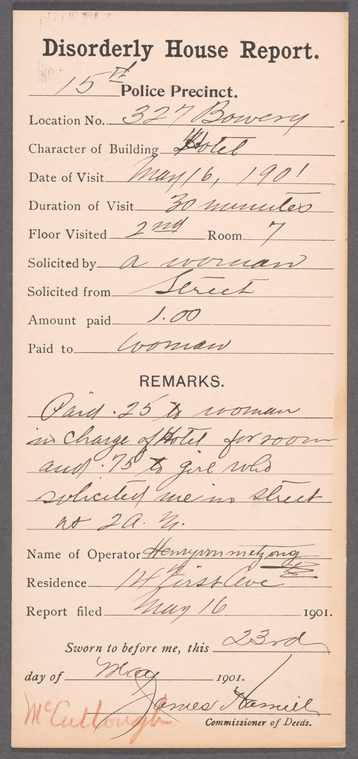 Disorderly House Report.
15th Police Precinct.
Location No. 327 Bowery
Character of Building Hotel
Date of Visit May 16, 1901
Duration of Visit 30 minutes
Floor Visited 2nd Room 7
Solicited by a woman
Solicited from Street
Amount paid 1.00
Paid to woman
REMARKS.
Paid .25 to woman
in charge of Hotel for room
and .75 to girl who
solicited me in street
at 2 A.M.
Name of Operator Henry
Residence 14 First Ave
Report filed May 16 1901.
Sworn to before me, this 23rd
day of May 1901.
James Hamill
McCullough Commissioner of Deeds.